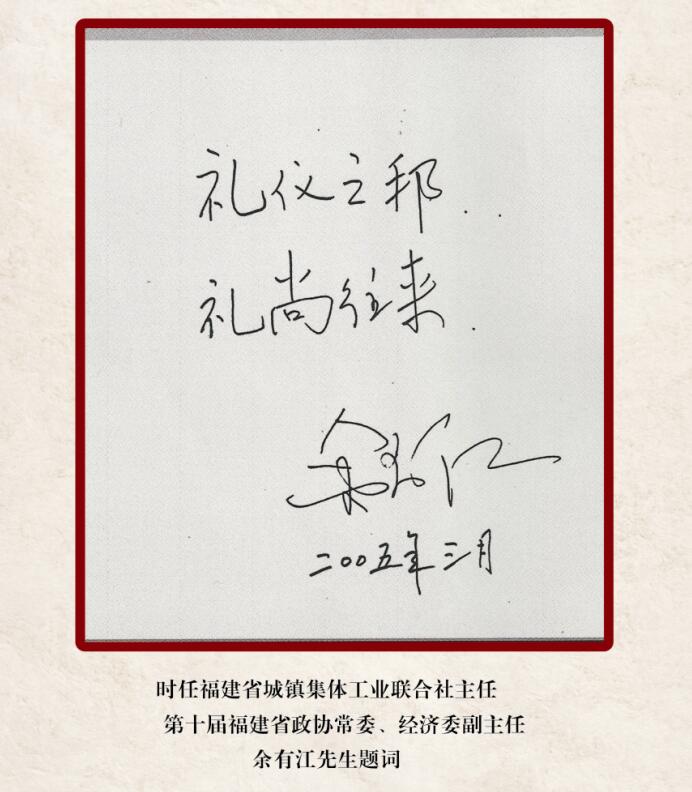 礼仪之邦
礼尚往来
余有江
二00五年三月
时任福建省城镇集体工业联合社主任
第十届福建省政协常委、经济委副主任
余有江先生题词